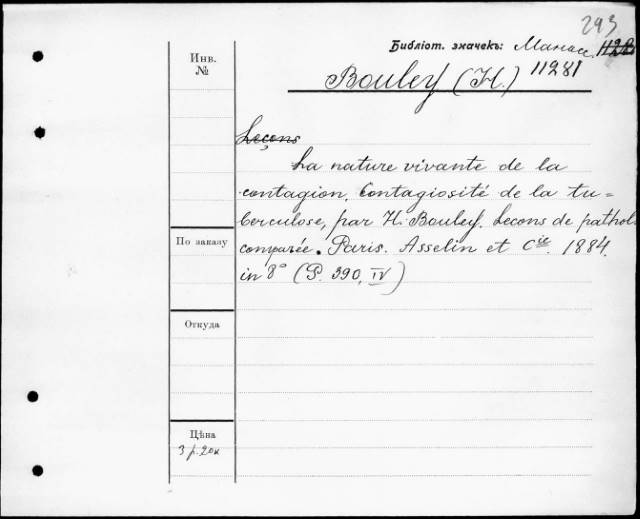 293
Библіот. значекъ: Манас. 1128
11281
Инв.
№
Bouley (H.)
Leçons
La nature vivante de la
contagion. Contagiosité de la tu=
berculose, par H. Bouley. Lecons de pathol.
comparée. Paris. Asselin et Cie. 1884.
in 8° (P. 390, IV)
По заказу
Откуда
Цѣна
3 р. 20 к